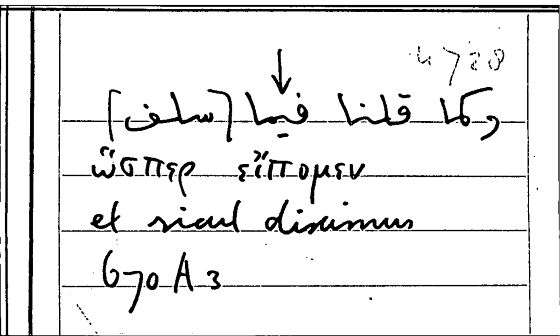 4728
وكما قلنا فيما [سلف]
ὥσπερ εἴπομεν
et sicut diximus
670 A 3